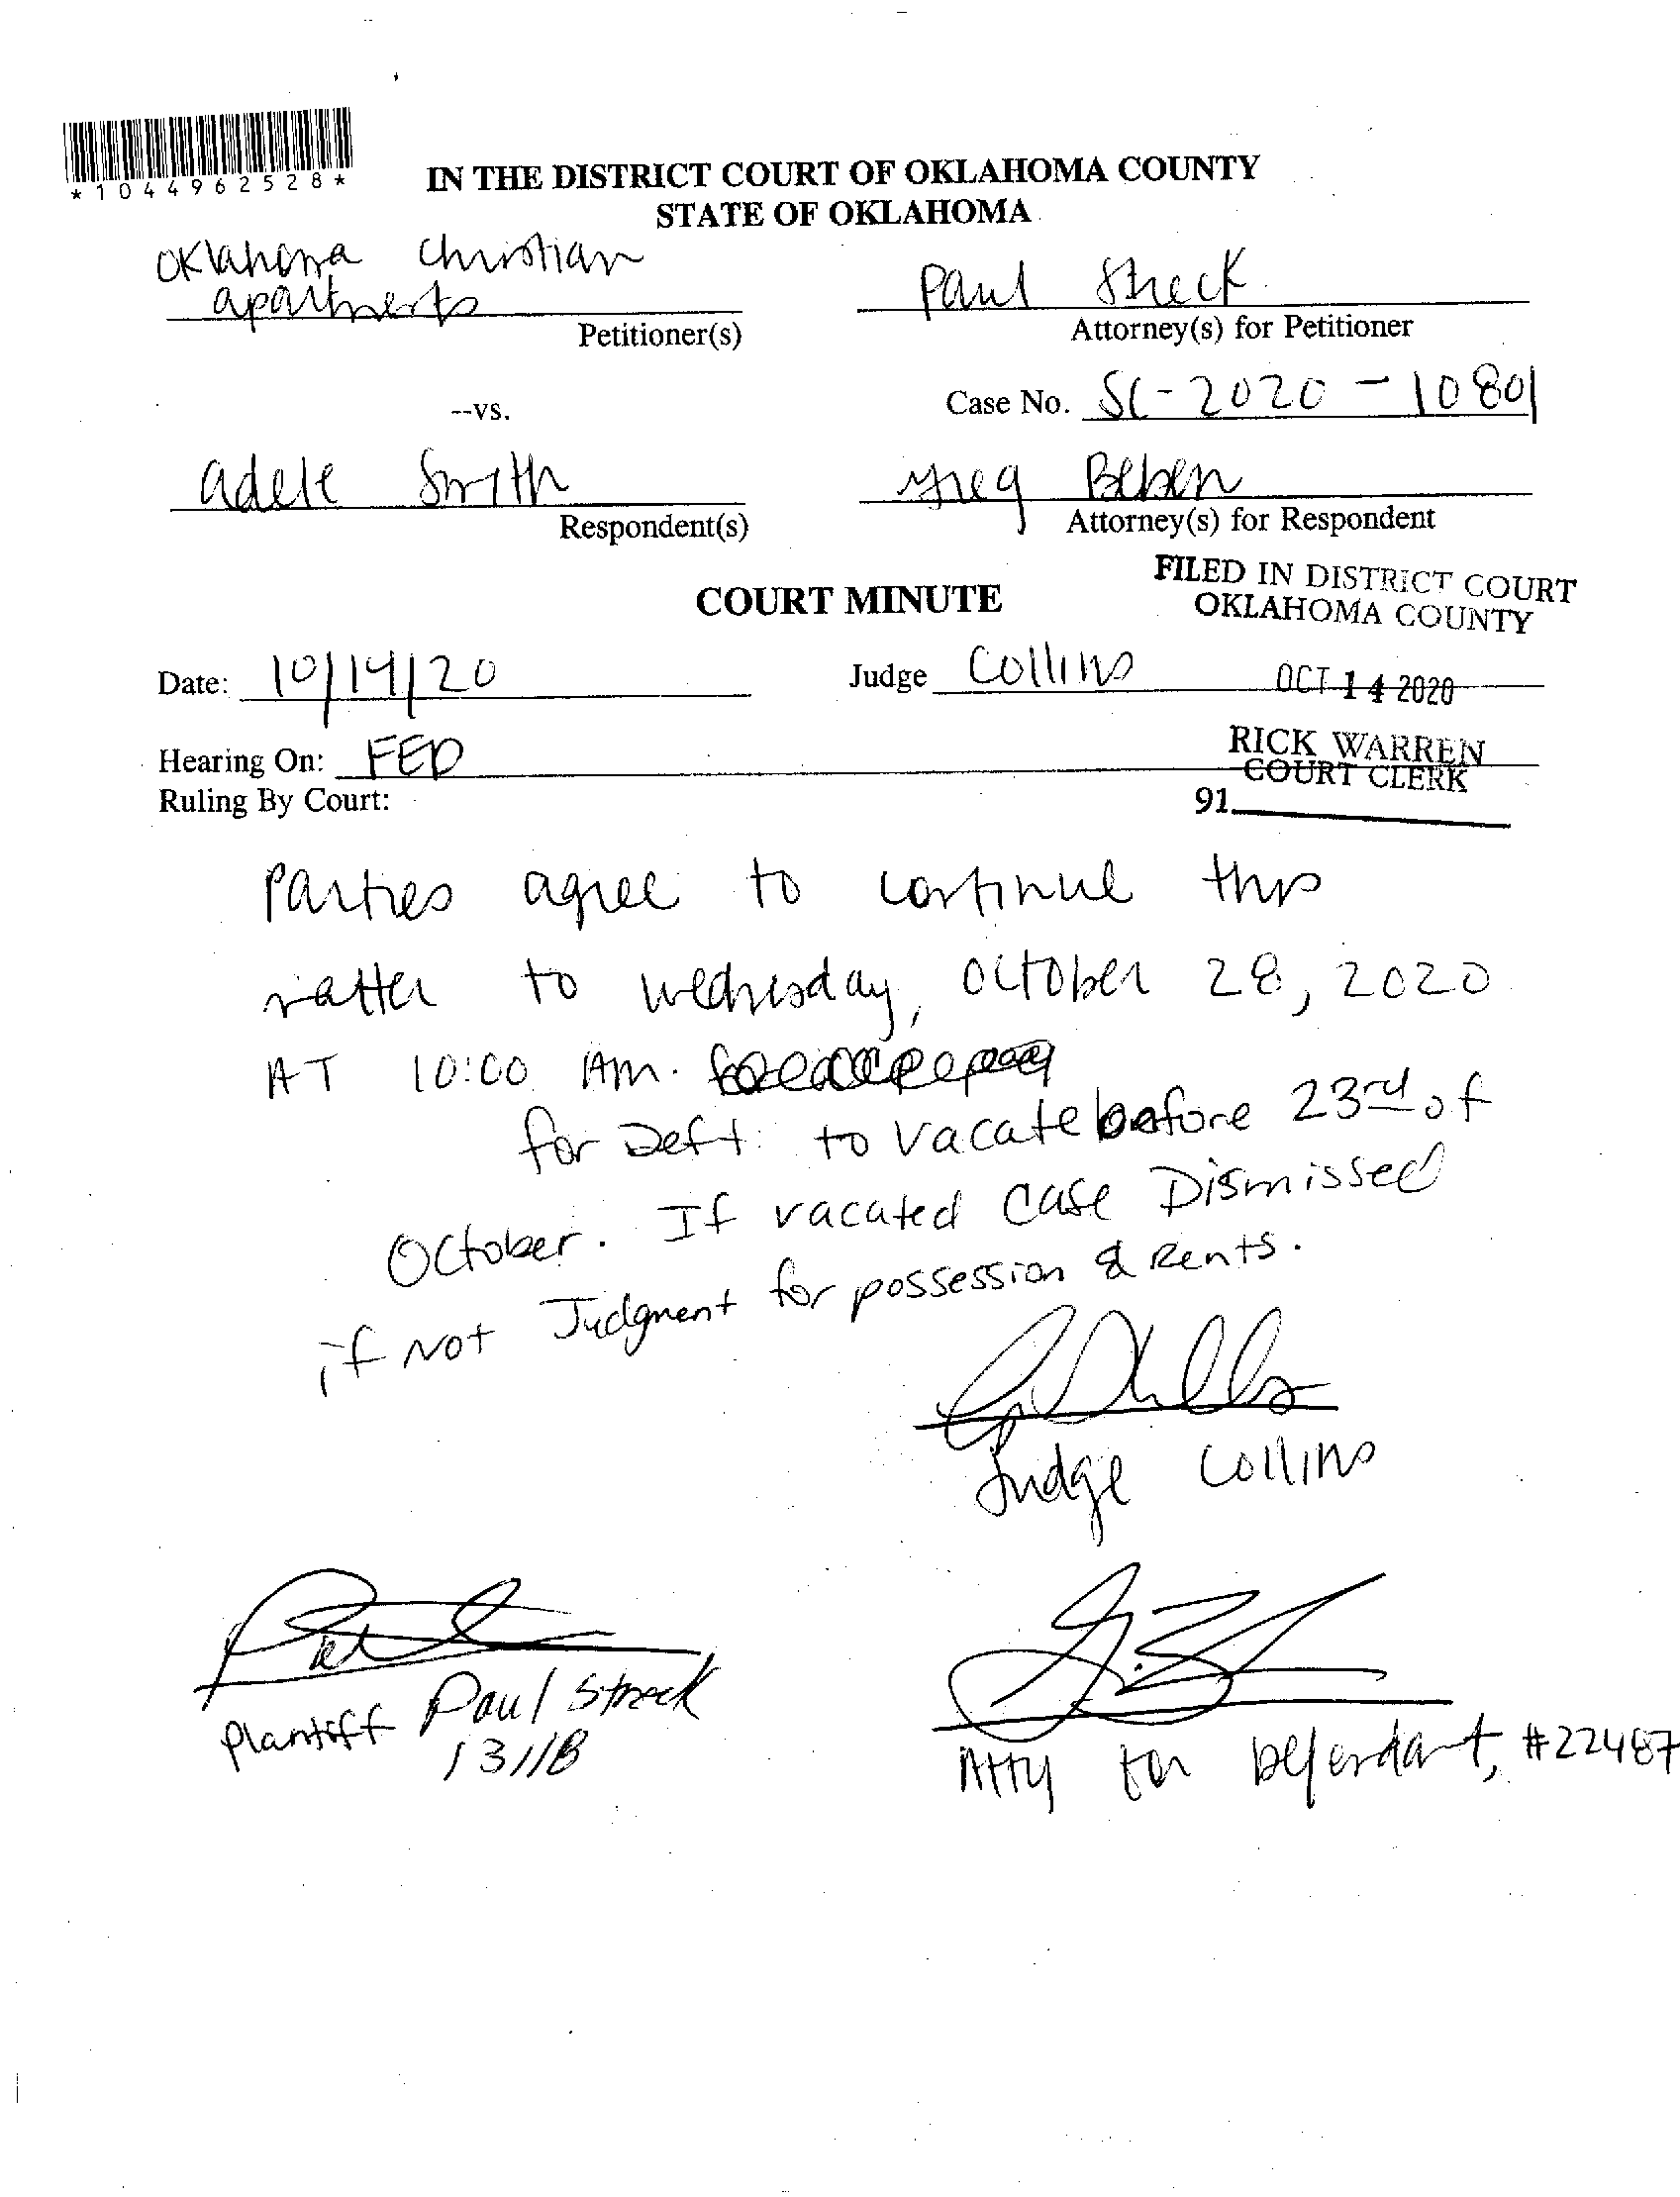 *1044962528*
IN THE DISTRICT COURT OF OKLAHOMA COUNTY
STATE OF OKLAHOMA
Oklahoma Christian
apartments
Petitioner(s)
Paul Streck
Attorney(s) for Petitioner
--vs.
Case No. SC-2020-10801
adele Smith
Respondent(s)
Greg Beben
Attorney(s) for Respondent
COURT MINUTE
FILED IN DISTRICT COURT
OKLAHOMA COUNTY
Date: 10/14/20
Judge Collins
OCT 14 2020
Hearing On: FED
RICK WARREN
COURT CLERK
Ruling By Court:
91
Parties agree to continue this
matter to wednesday, October 28, 2020
AT 10:00 AM.
for Deft. to vacate before 23rd of
October. If vacated Case Dismissed
if Not Judgment for possession & Rents.
Judge Collins
Plantiff Paul Streck
13118
Atty for Defendant, #22487